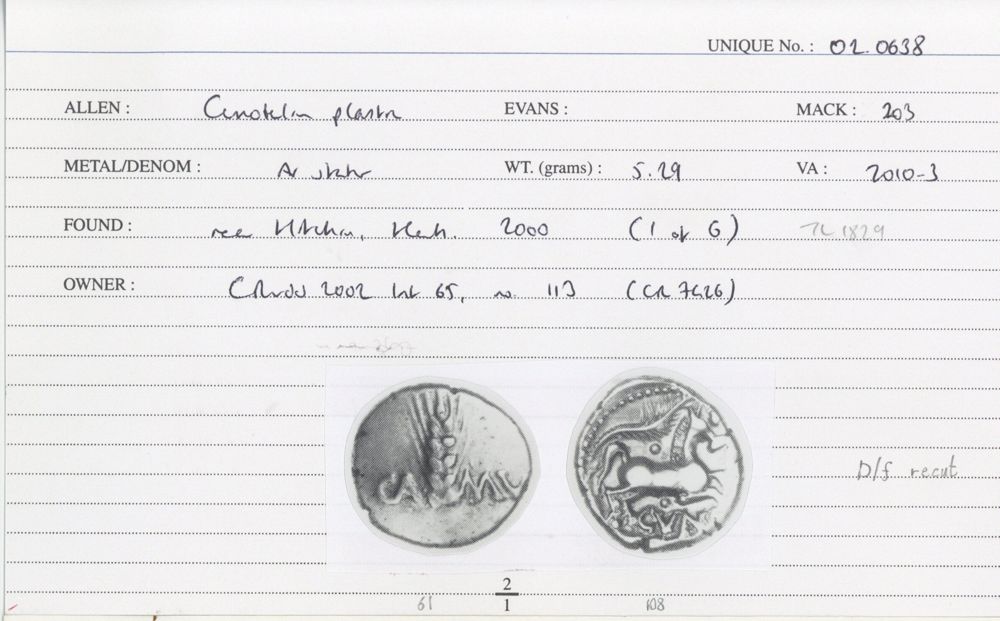 UNIQUE No. : 02.0638
ALLEN : Cunobelin plastic EVANS : MACK : 203
METAL/DENOM : Av stater WT. (grams) : 5.29 VA : 2010-3
FOUND : near Hitchin, Herts. 2000 (1 of 6) TL 1829
OWNER : CRudd 2002 list 65, no. 113 (CR 7426)
CA MV
SVA
D/f recut
61 2/1 108